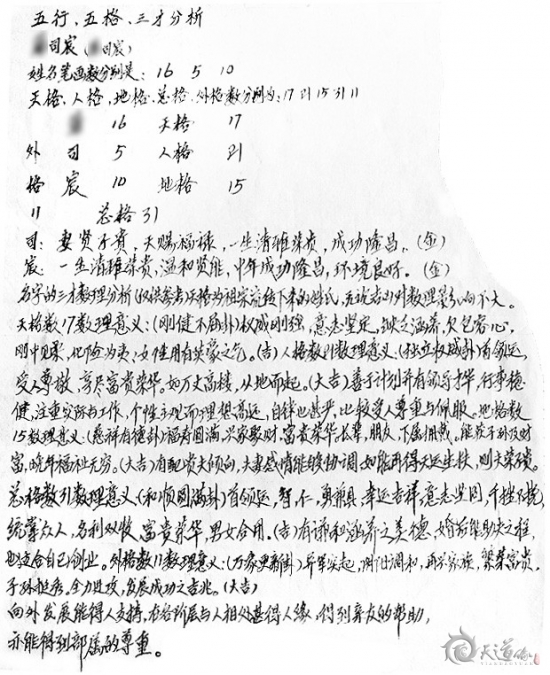 五行、五格、三才分析
司宸（司宸）
姓名笔画数分别是：16 5 10
天格、人格、地格、总格、外格数分别为：17 21 15 31 11
16 天格 17
外 司 5 人格 21
格 宸 10 地格 15
11 总格31
司：妻贤子贵，天赐福禄，一生清雅荣贵，成功隆昌。（金）
宸：一生清雅荣贵，温和贤能，中年成功隆昌，环境良好。（金）
名字的三才数理分析（仅供参考）天格为祖宗流传下来的姓氏，无论吉凶对数理影响不大。
天格数17数理意义：（刚健不屈卦）权威刚强，意志坚定，缺乏涵养，欠包容心，
刚中见柔，化险为夷，女性用有失豪之气。（吉）人格数21数理意义：（独立权威卦）首领运，
受人尊敬，享尽富贵荣华。如万丈高楼，从地而起。（大吉）善于计划并有领导才华，行事稳
健，注重实际与工作，个性主观而理想高远，自律也甚严，比较受人尊重与佩服。地格数
15数理意义：（慈祥有德卦）福寿圆满，兴家聚财，富贵荣华长辈，朋友，下属拥戴。能荻子孙及财
富，晚年福祉无穷。（大吉）有配贵夫倾向，夫妻感情能够协调，如能再得天运生扶，则大荣硕。
总格数31数理意义（和顺圆满卦）首领运，智、仁、勇兼具，幸运吉祥，意志坚固，千挫不挠，
统率众人，名利双收，富贵荣华，男女合用。（吉）有谦和涵养之美德，婚前能助夫之程，
也适合自己创业。外格数11数理意义：（万象更新卦）异军突起，阴阳调和，再兴家族，繁荣富贵，
子孙挺秀。全力进攻，发展成功之吉兆。（大吉）
向外发展能得人支持，在各阶层与人相处甚得人缘，得到亲友的帮助，
亦能得到部属的尊重。
天道修